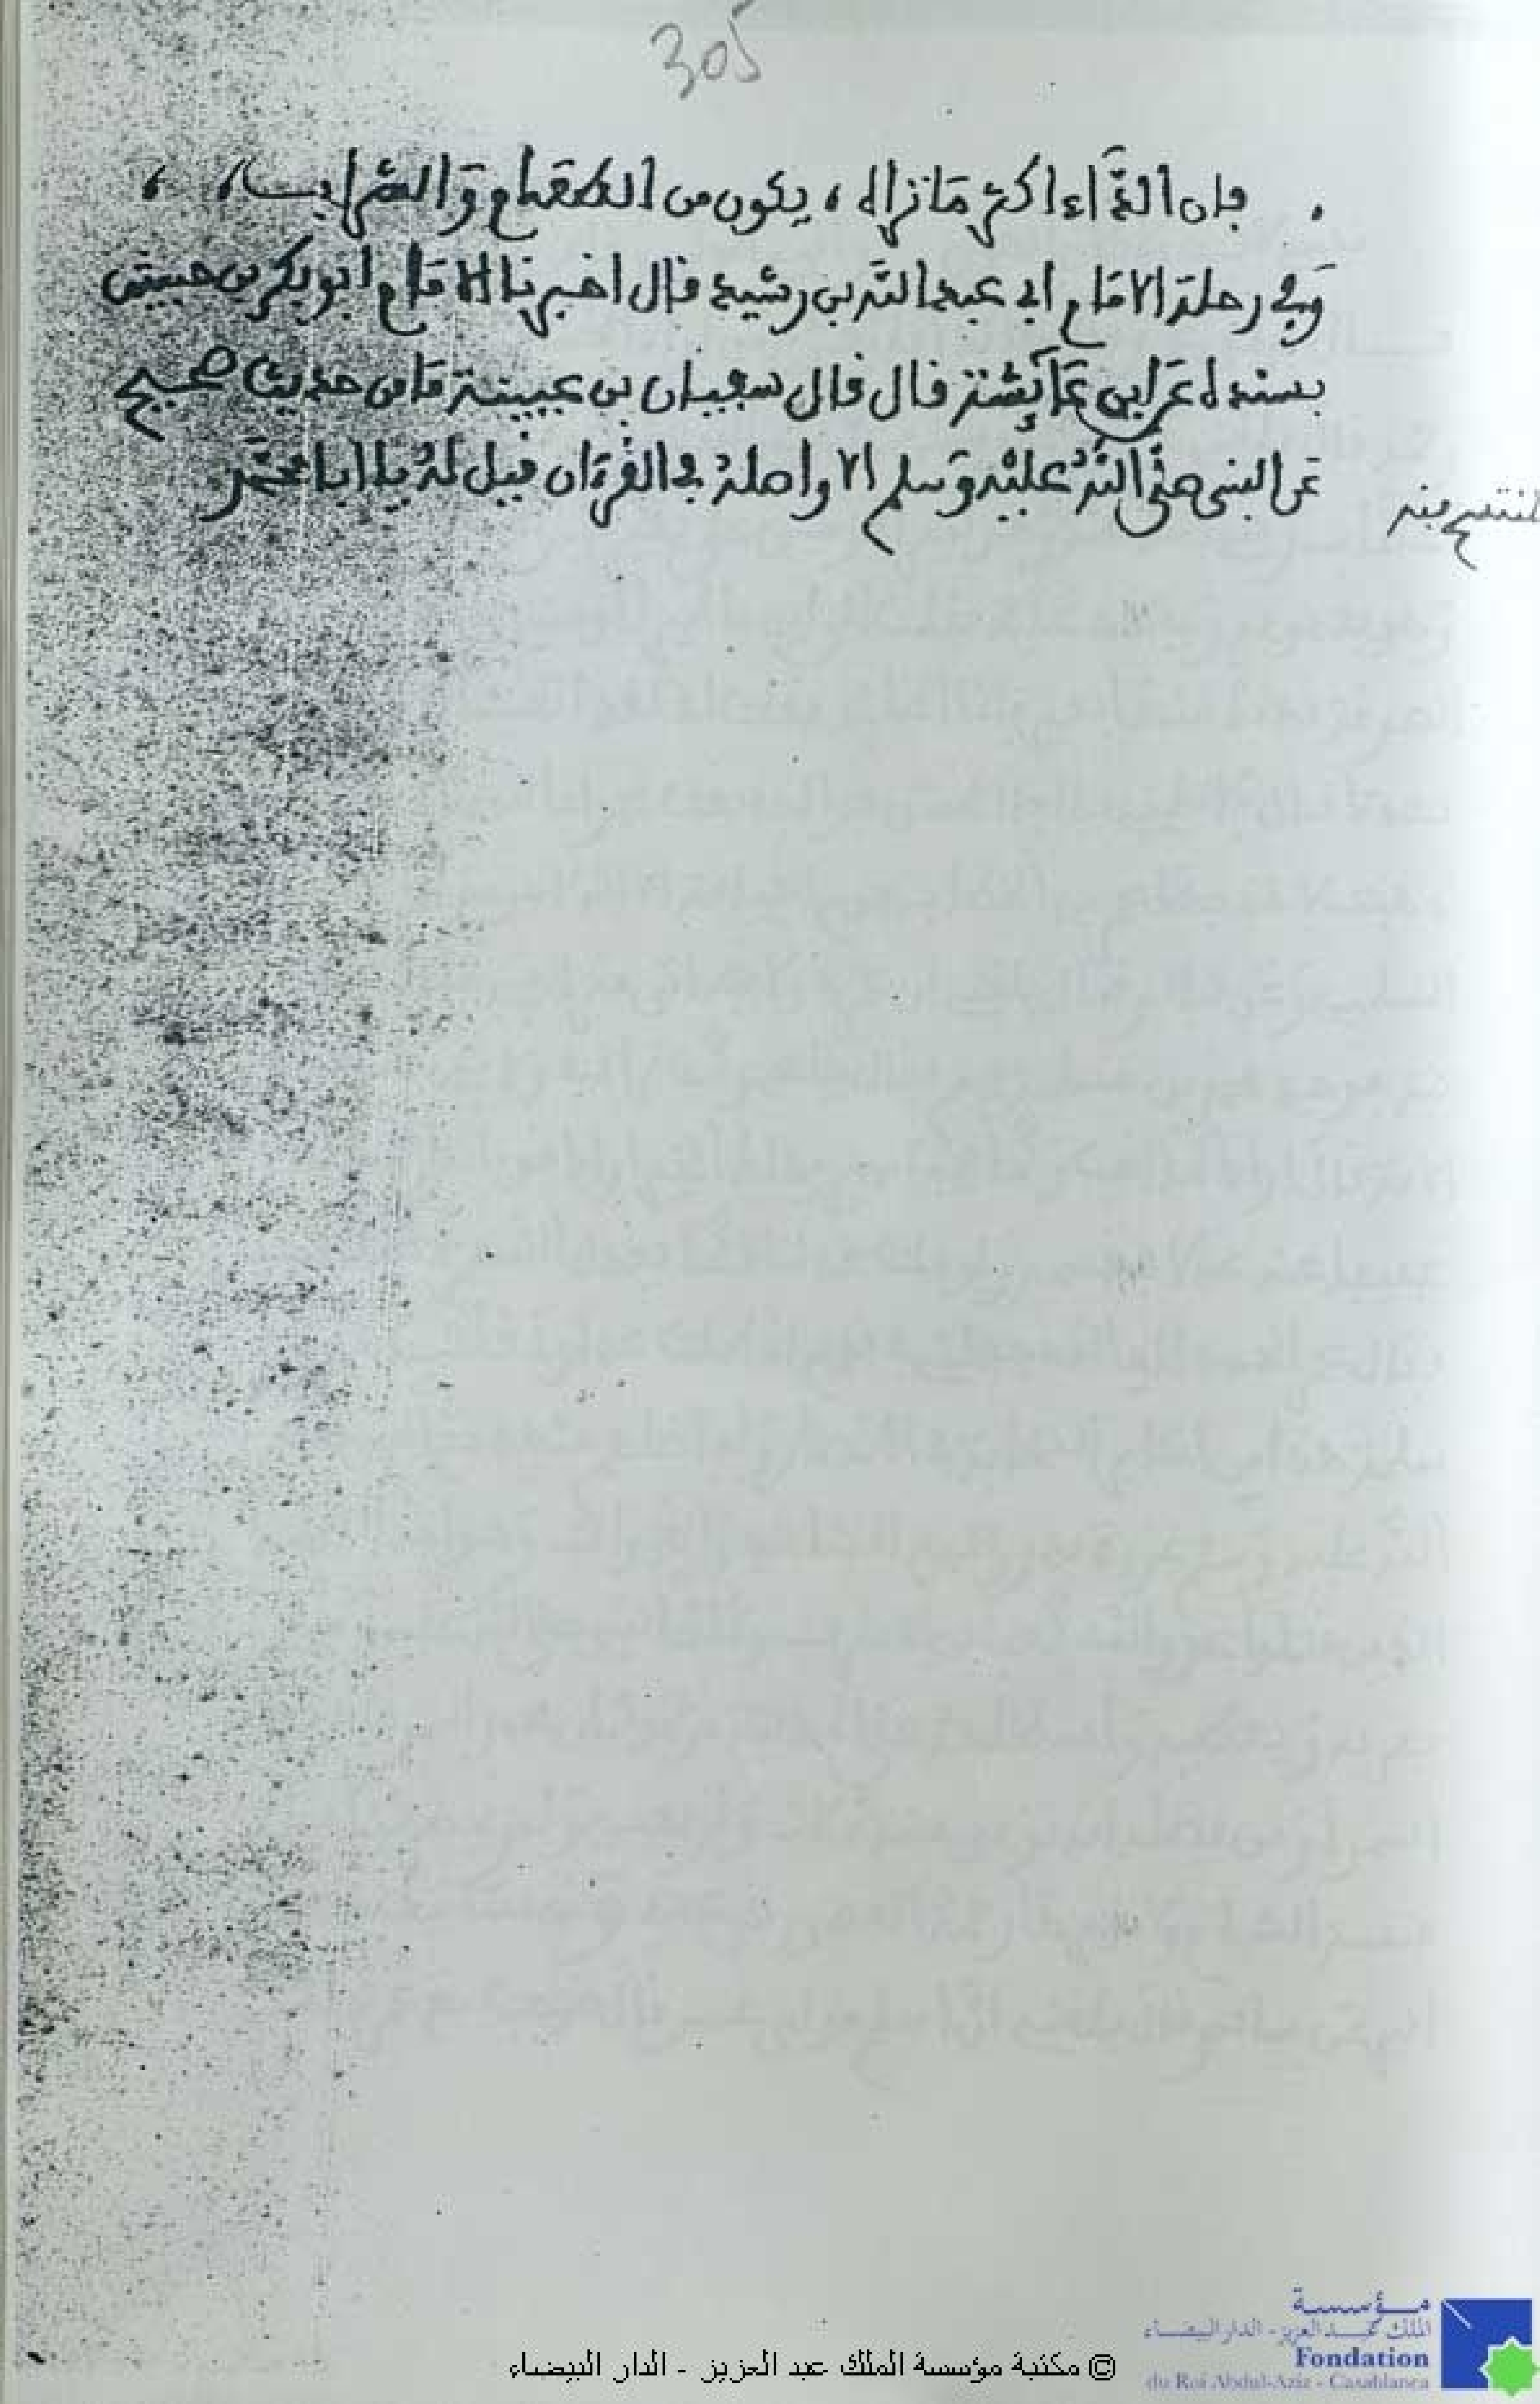 305
فإن الداء اكثر مَا تراه ، يكون من الطعَام وَالشراب ، ،
وَفي رحلة الامَام ابي عبد اللّه بن رشيد قال اخبرنا الامَام ابو بكر بن حبيش
بسنده عَن ابن عَائِشة قال قال سفيان بن عيينة مَا من حديث صحيح
عَن النبي صلّى اللّهُ عليْه وَسلم الا واصلهُ في القرْءَان فقيل لهُ يا ابا محمّد
منه
© مكتبة مؤسسة الملك عبد العزيز - الدار البيضاء
مؤسسة
الملك عبد العزيز - الدار البيضاء
Fondation
du Roi Abdul-Aziz - Casablanca